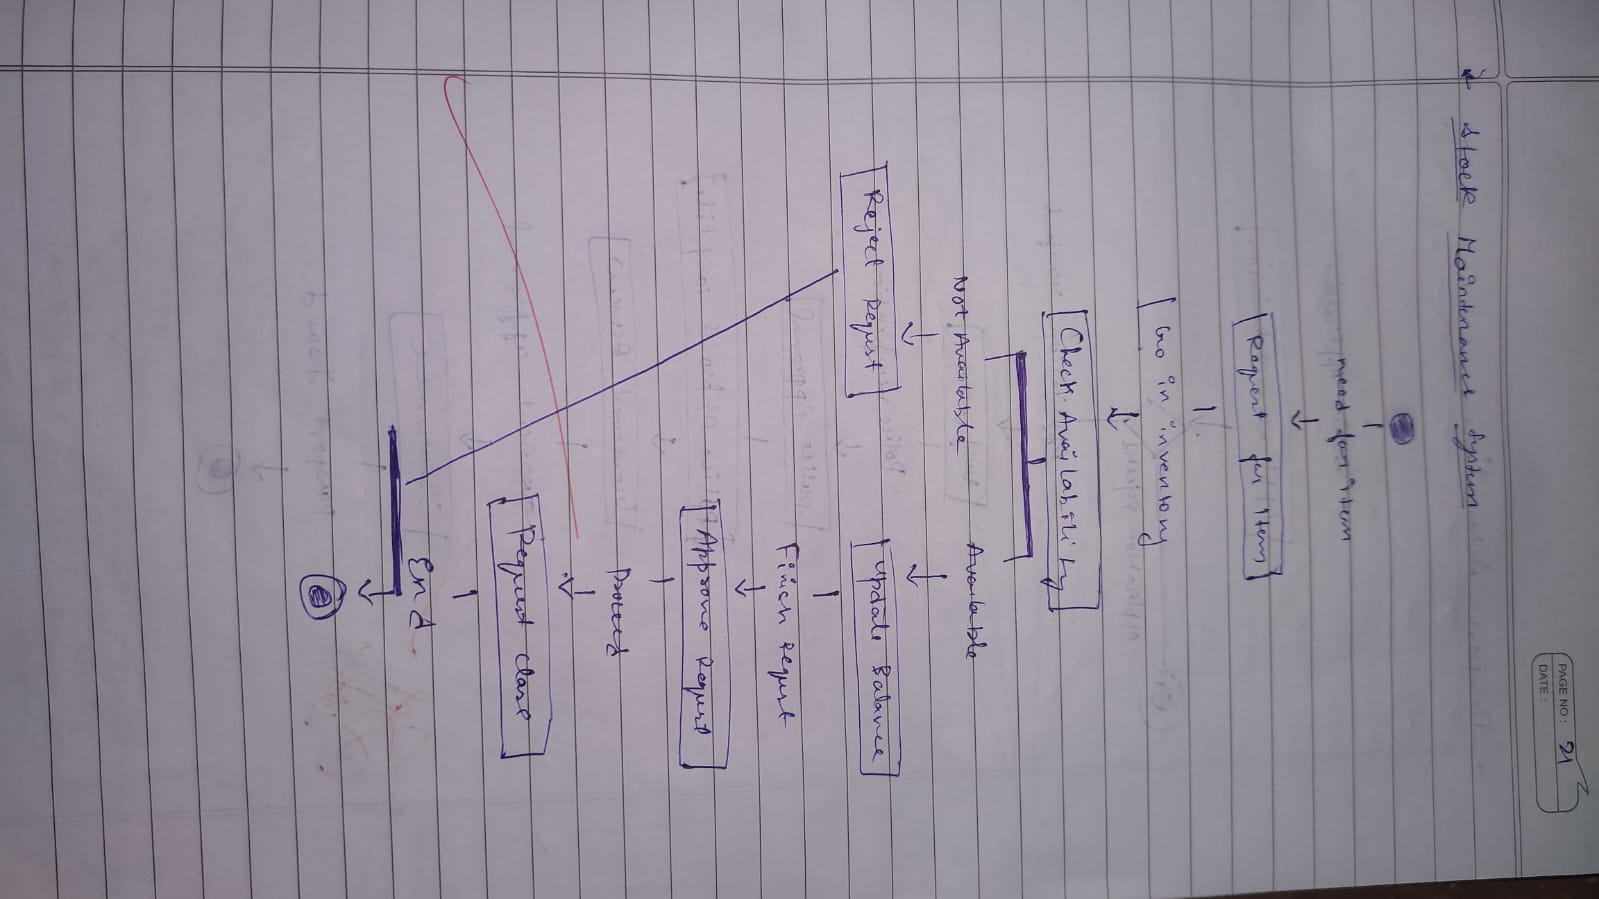 PAGE NO: 21
DATE:
* Stock Maintenance System
need for item
Request for Item
Go in inventory
Check Availability
Not Available Available
Reject Request Update Balance
Finish Request
Approve Request
Proceed
Request close
End